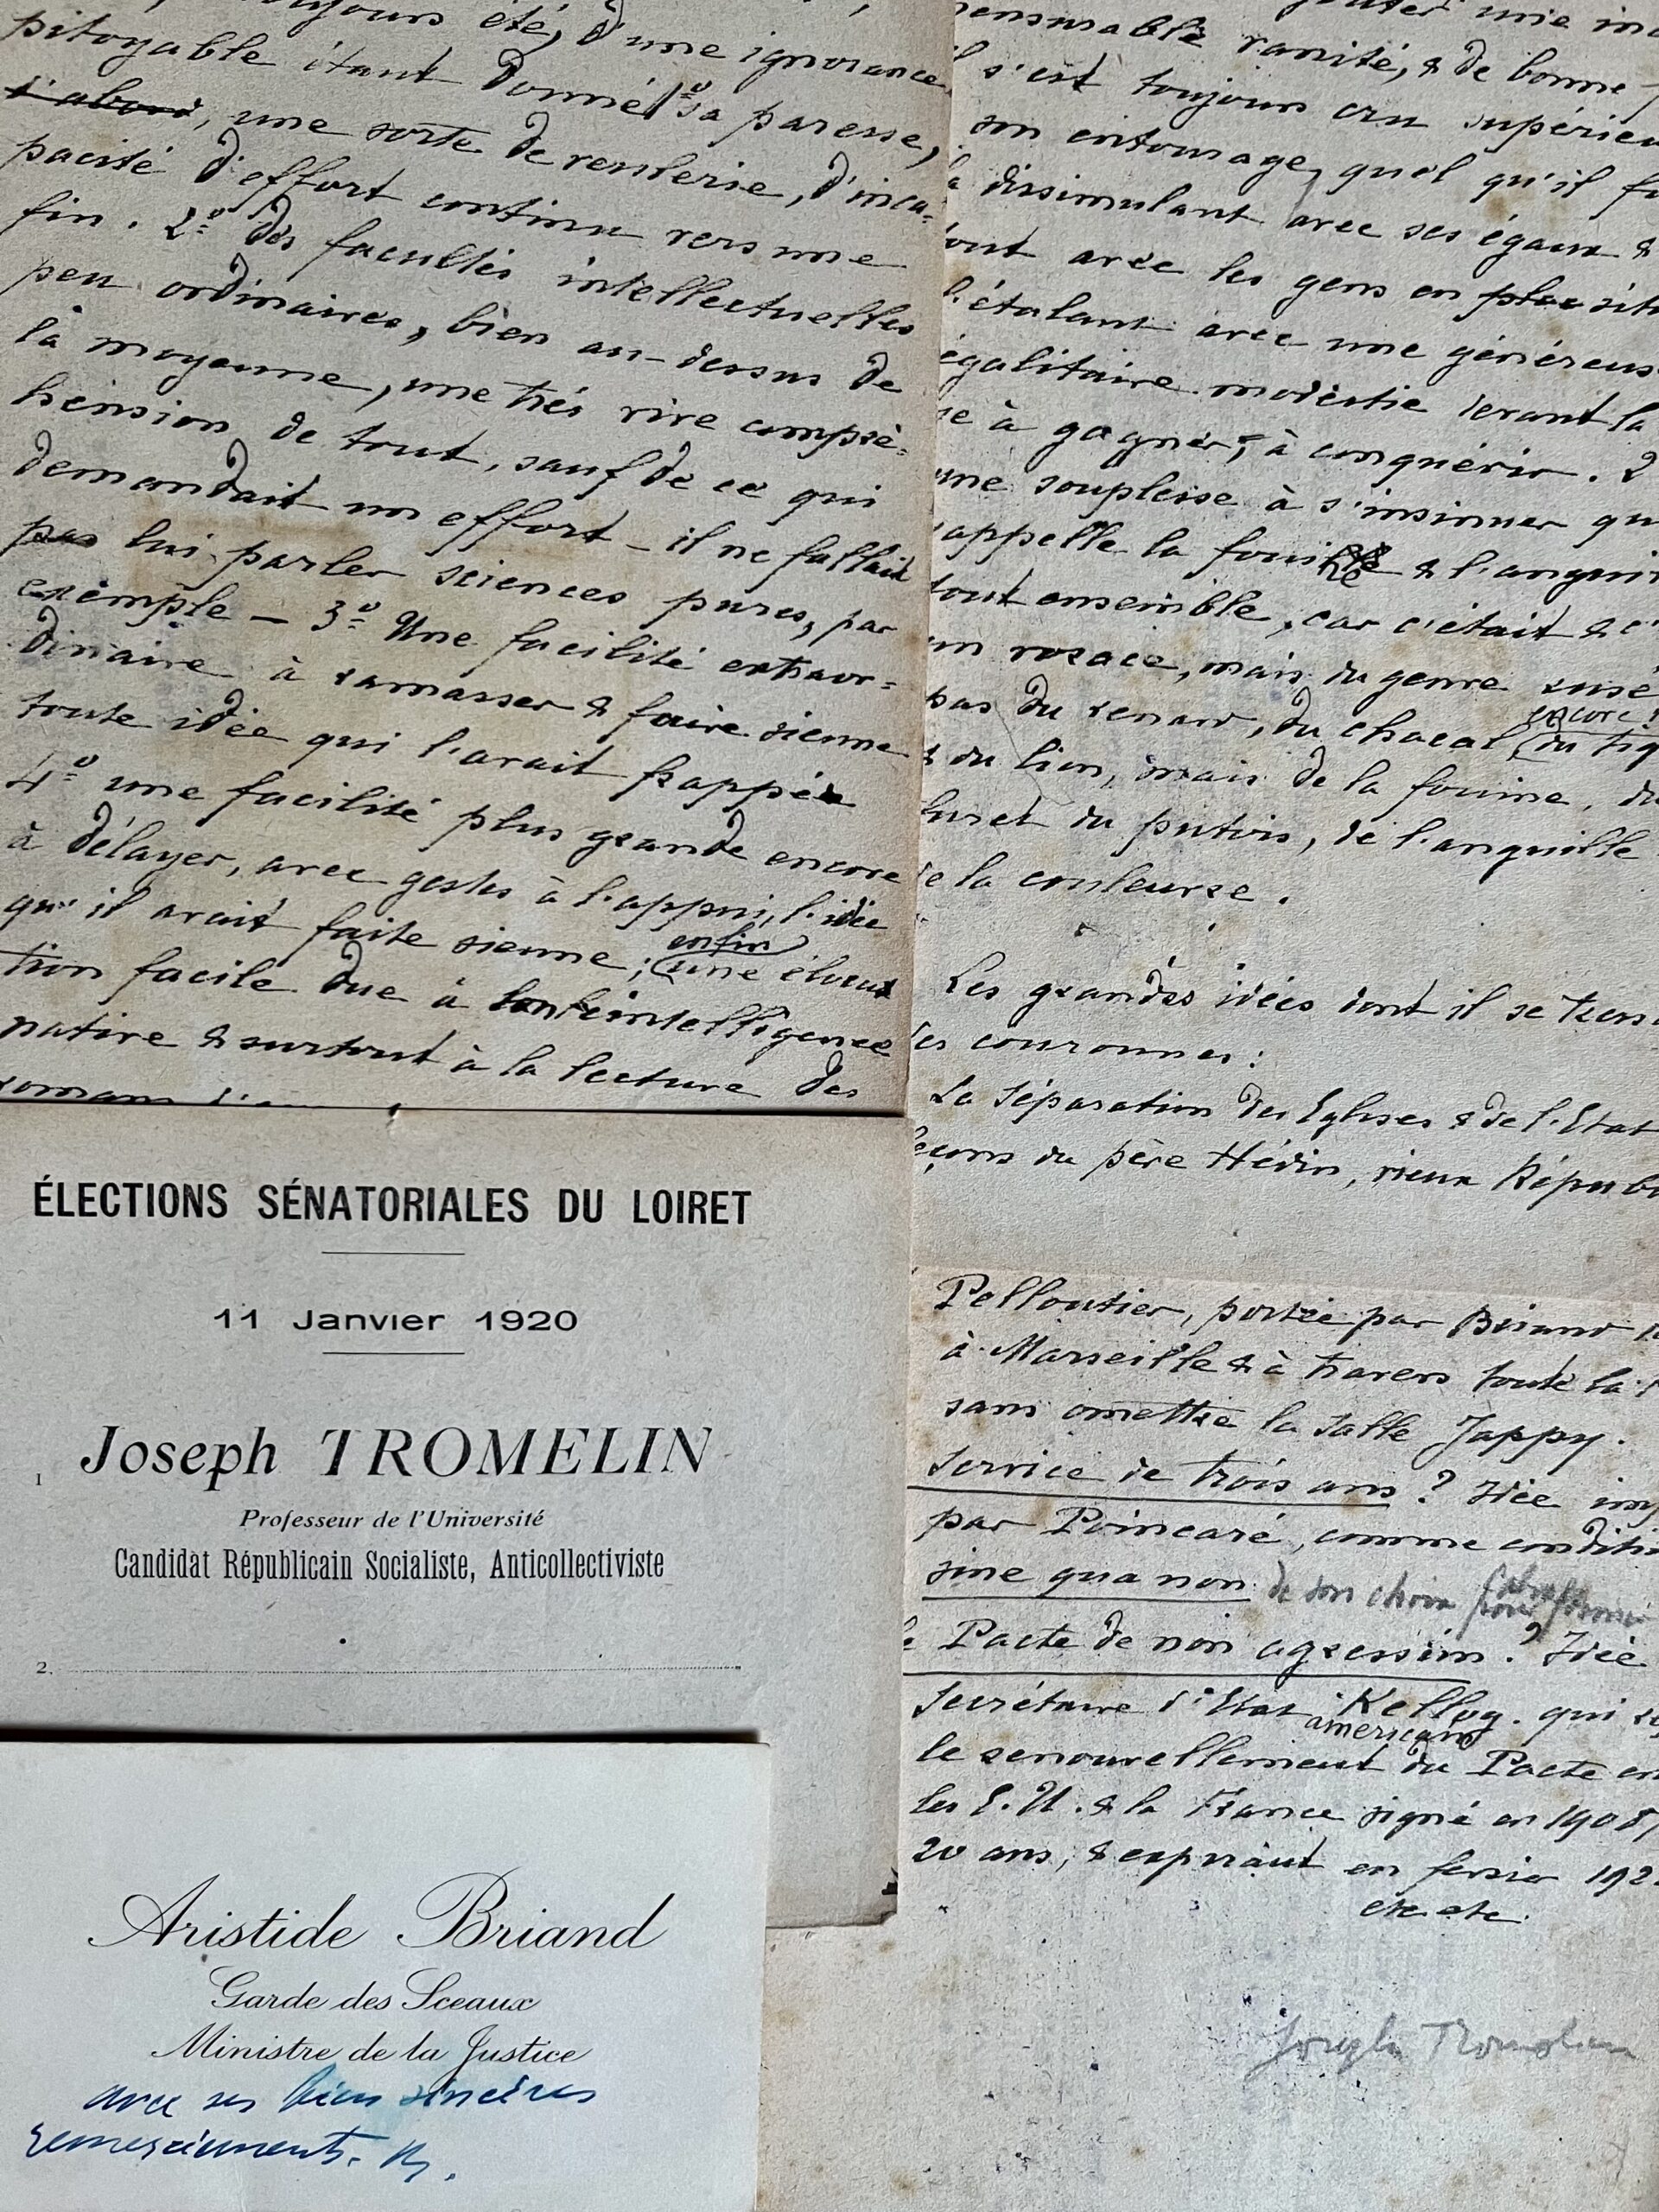 toujours été, d'une ignorance
pitoyable étant donné 1º sa paresse,
d'abord, une sorte de veulerie, d'inca=
pacité d'effort continu vers une
fin. 2º des facultés intellectuelles
peu ordinaires, bien au-dessus de
la moyenne, une très vive compré=
hension de tout, sauf de ce qui
demandait un effort - il ne fallait
pas lui parler sciences pures, par
exemple - 3º Une facilité extraor=
dinaire à ramasser & faire sienne
toute idée qui l'avait frappée
4º une facilité plus grande encore
à délayer, avec gestes à l'appui, l'idée
qu'il avait faite sienne; enfin une élocu
tion facile due à intelligence
native & surtout à la lecture des
romans
ÉLECTIONS SÉNATORIALES DU LOIRET
11 Janvier 1920
1 Joseph TROMELIN
Professeur de l'Université
Candidat Républicain Socialiste, Anticollectiviste
2.
Aristide Briand
Garde des Sceaux
Ministre de la Justice
avec ses bien sincères
remerciements. Br.
une
vanité, & de bonne
s'est toujours cru supérieu
son entourage, quel qu'il fu
dissimulant avec ses égaux &
tout avec les gens en place
l'étalant avec une généreus
égalitaire modestie devant la
à gagner, à conquérir. 2
une souplesse à s'insinuer qu
rappelle la fouine & l'angui
tout ensemble, car c'était & c'
un rosace, mais du genre rusé
pas du renard, du chacal encore! du tig
& du lion, mais de la fouine, du
furet du putois, de l'anguille
de la couleuvre.
Les grandes idées dont il se tress
des couronnes:
La Séparation des Eglises & de l'Etat
leçons du père Hédin, vieux Républ
Pelloutier, portée par Briand
à Marseille & à travers toute la
sans omettre la salle Jappy.
Service de trois ans? Idée im
par Poincaré, comme conditi
sine qua non de son choix pour former
le Pacte de non agression? Idée
Secrétaire d'Etat américain Kellog. qui
le renouvellement du Pacte en
les E.U. & la France signé en 1908,
20 ans, & expirant en février 192
etc etc.
Joseph Tromelin